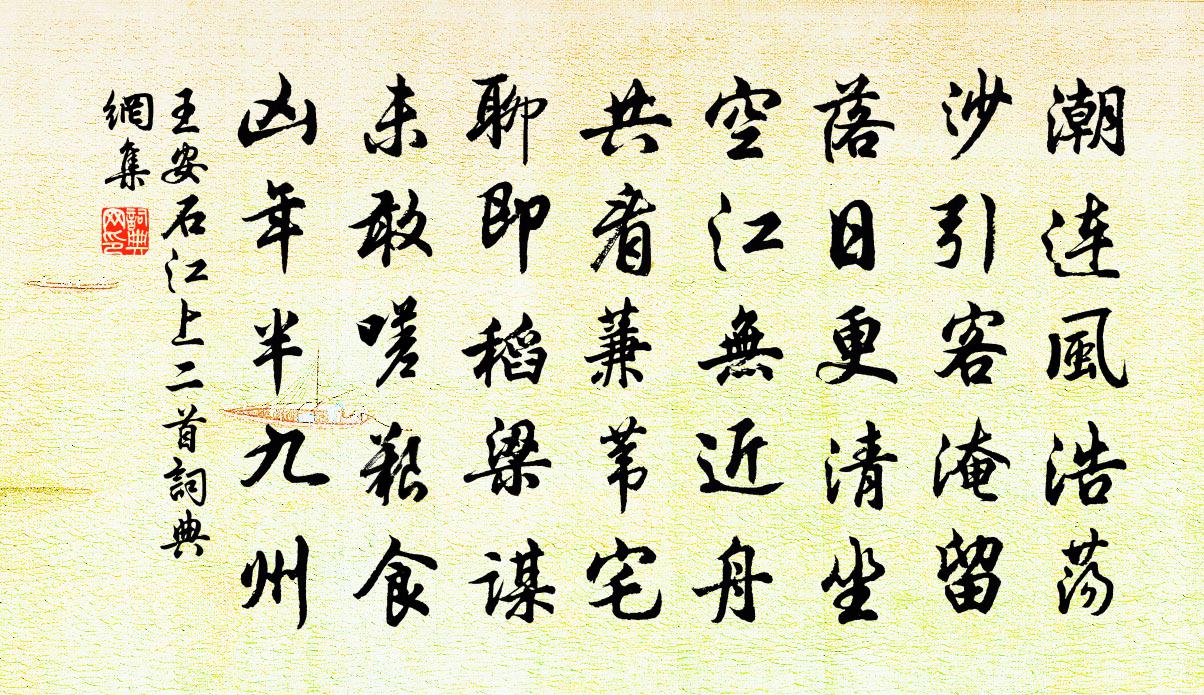 潮連風浩蕩
沙引客淹留
落日更清坐
空江無近舟
共看蒹葦宅
聊即稻粱謀
未敢嗟艱食
凶年半九州
王安石江上二首詞典
網集
詞典
网印